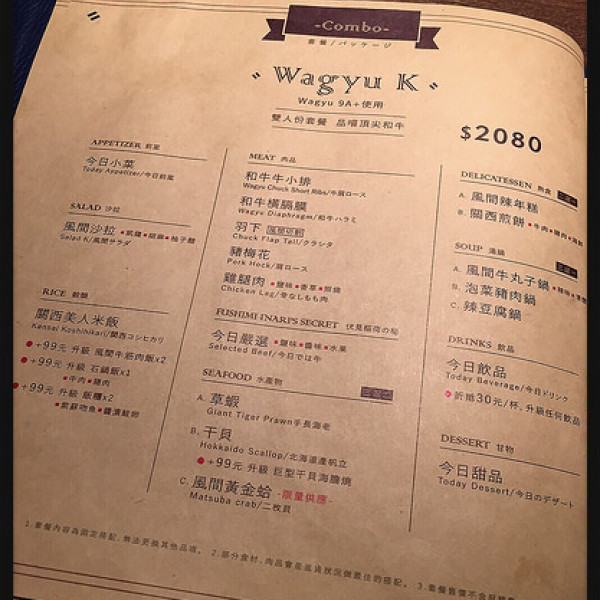 -Combo-
套餐/パッケージ
Wagyu K
Wagyu 9A+使用
雙人份套餐 品嚐頂尖和牛
$2080
APPETIZER 前菜
今日小菜
Today Appetizer/今日前菜
SALAD 沙拉
風間沙拉 •凱薩•胡麻•柚子醋
Salad K/風間サラダ
RICE 穀類
關西美人米飯
Kansai Koshihikari/関西コシヒカリ
+99元 升級 風間牛筋肉飯x2
+99元 升級 石鍋飯x1
•牛肉•豬肉
+99元 升級 飯糰x2
MEAT 肉品
和牛牛小排
Wagyu Chuck Short Ribs/牛肩ロース
和牛橫膈膜
Wagyu Diaphragm/和牛ハラミ
羽下 風間切割
Chuck Flap Tail/クラシタ
豬梅花
Pork Hock/肩ロース
雞腿肉 •鹽味•香草•照燒
Chicken Leg/骨なしもも肉
FUSHIMI INARI'S SECRET 伏見稲荷の秘
今日嚴選 •鹽味•醬味•水果
Selected Beef/今日では牛
SEAFOOD 水產物 三選二
A. 草蝦
Giant Tiger Prawn手長海老
B. 干貝
Hokkaido Scallop/北海道產帆立
+99元 升級 巨型干貝海膽燒
C. 風間黃金蛤 -限量供應-
Matsuba crab/二枚貝
DELICATESSEN 熟食 二選一
A. 風間辣年糕
B. 關西煎餅 •牛肉•豬肉•海鮮
SOUP 湯鍋 三選一
A. 風間牛丸子鍋
B. 泡菜豬肉鍋
C. 辣豆腐鍋
DRINKS 飲品
今日飲品
Today Beverage/今日ドリンク
折抵30元/杯,升級任何飲品
DESSERT 甘物
今日甜品
Today Dessert/今日のデザート
1.套餐內容為固定搭配,無法更換其他品項。 2.部分食材,肉品會是進貨狀況做最佳的搭配。 3.套餐售價不含